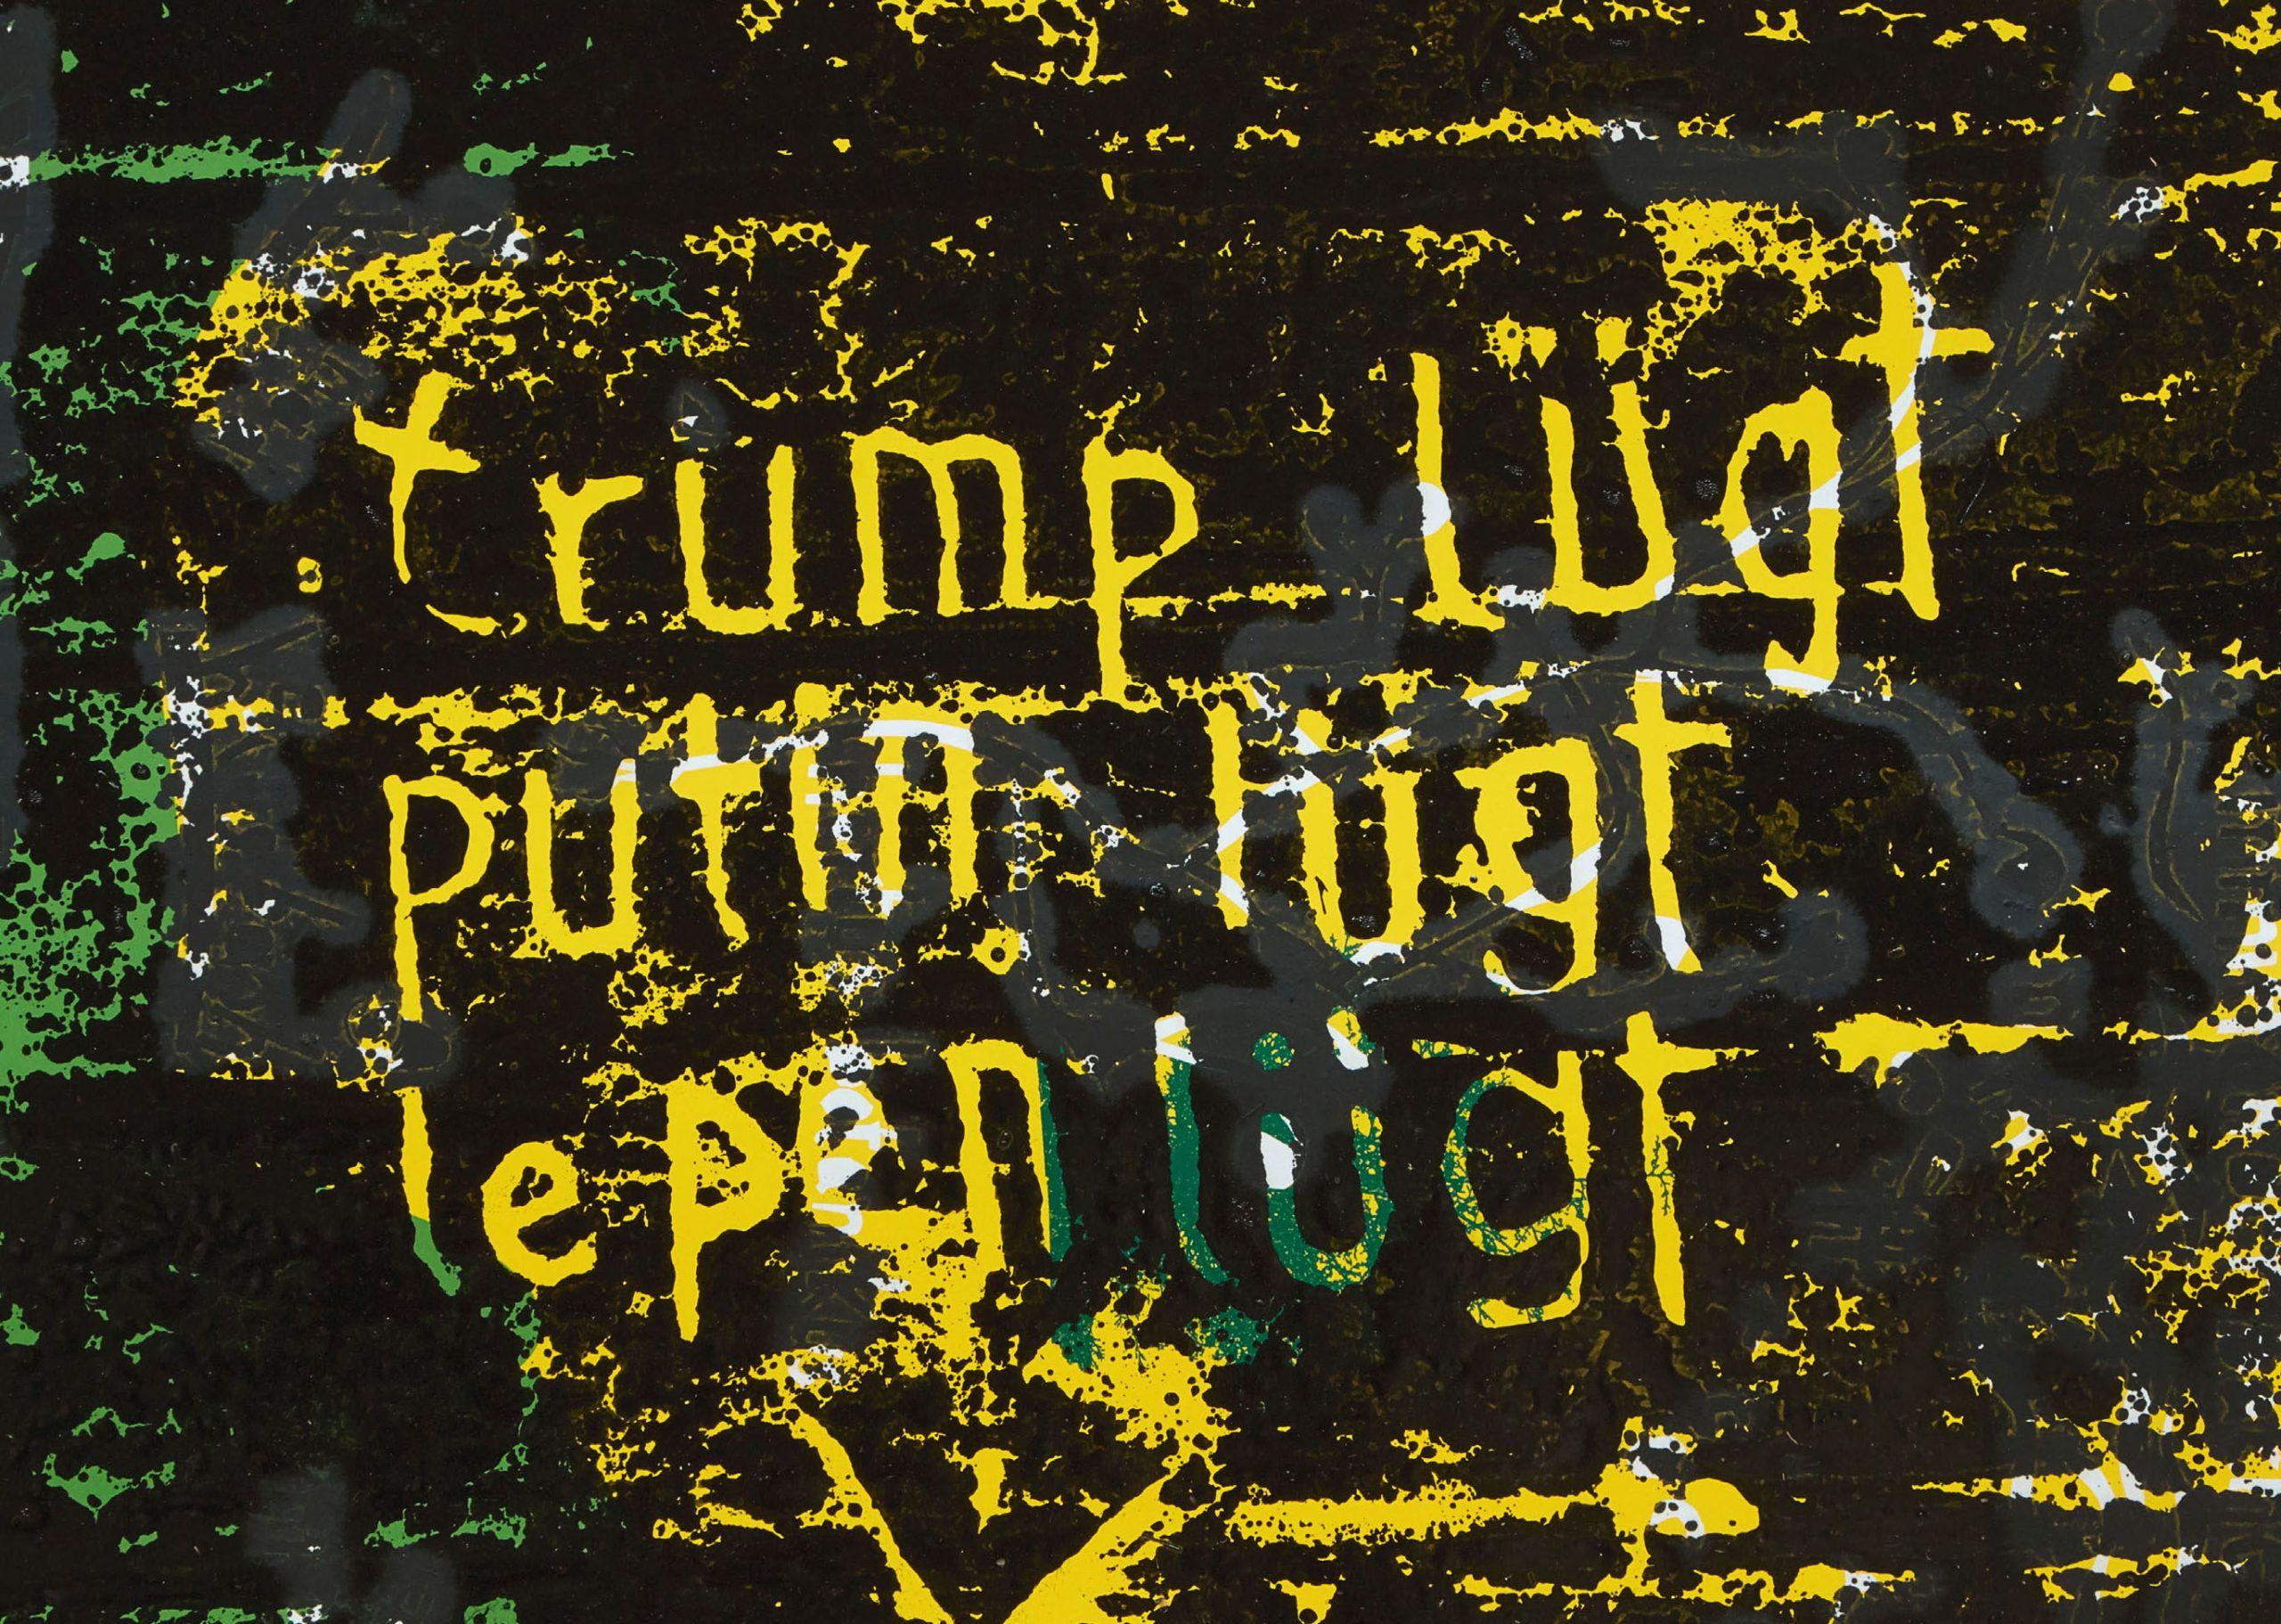 trump lügt
putin lügt
lepen lügt